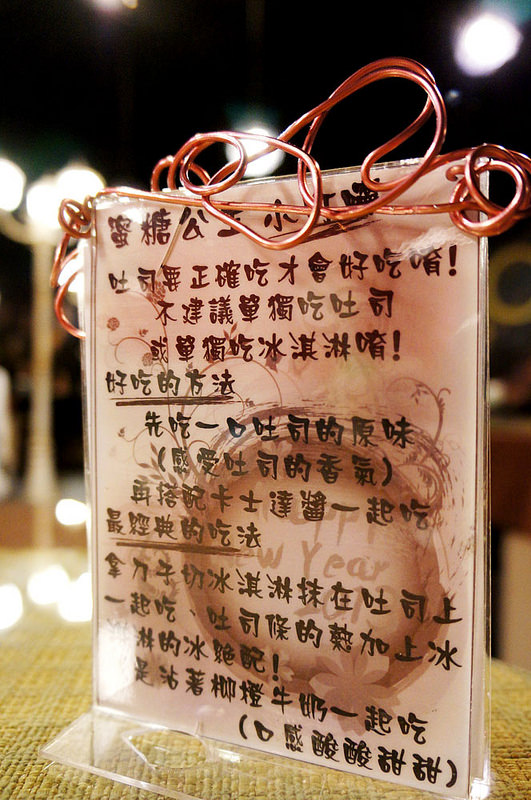 蜜糖公主小叮嚀
吐司要正確吃才會好吃唷!
不建議單獨吃吐司
或單獨吃冰淇淋唷!
好吃的方法
先吃一口吐司的原味
(感受吐司的香氣)
再搭配卡士達醬一起吃
最經典的吃法
拿刀子切冰淇淋抹在吐司上
一起吃、吐司條的熱加上冰
淇淋的冰絕配!
是沾著柳橙牛奶一起吃
(口感酸酸甜甜)
Happy
New Year